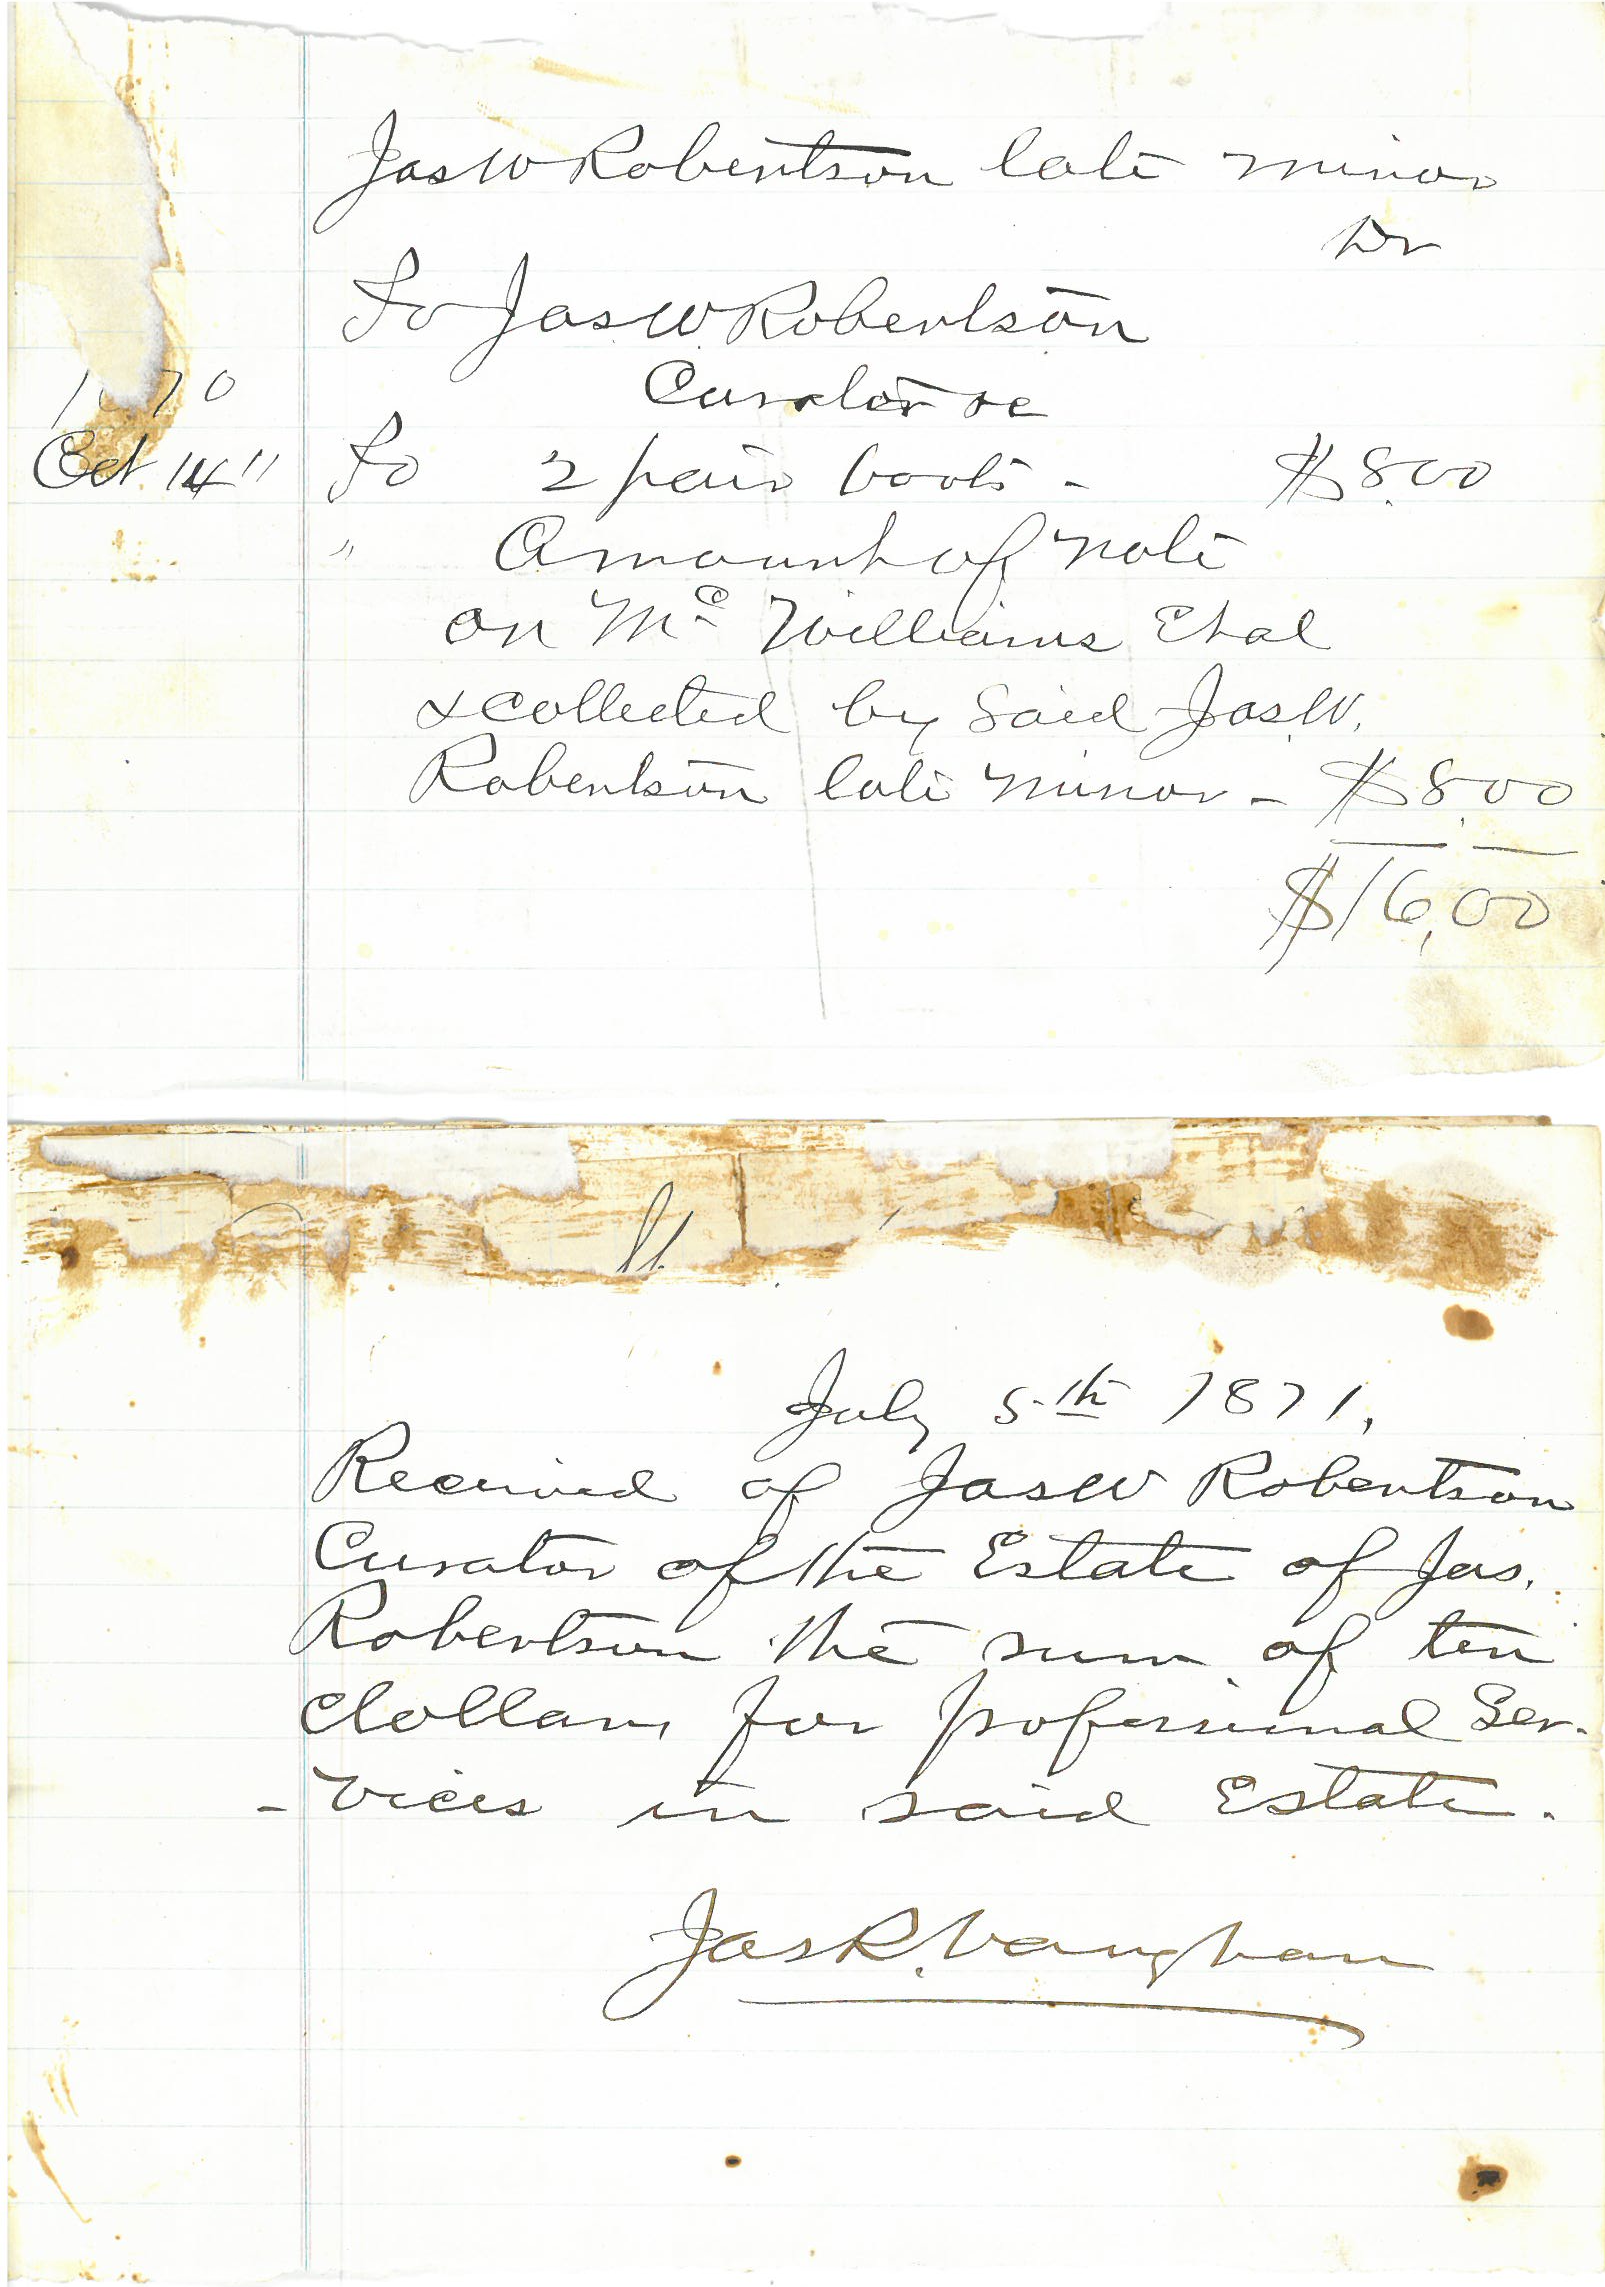 Jas W Robertson late minor
Dr
To Jas. W. Robertson
Curator &c
1870
Oct 14" To 2 pair boots - $8.00
" Amount of note
on Mc Williams Et al
& collected by said Jas. W.
Robertson late minor - $8.00
$16,00
July 5th 1871.
Received of Jas W Robertson
Curator of the Estate of Jas.
Robertson the sum of ten
dollars for professional Ser-
-vices in said Estate.
Jas R. Vaughan